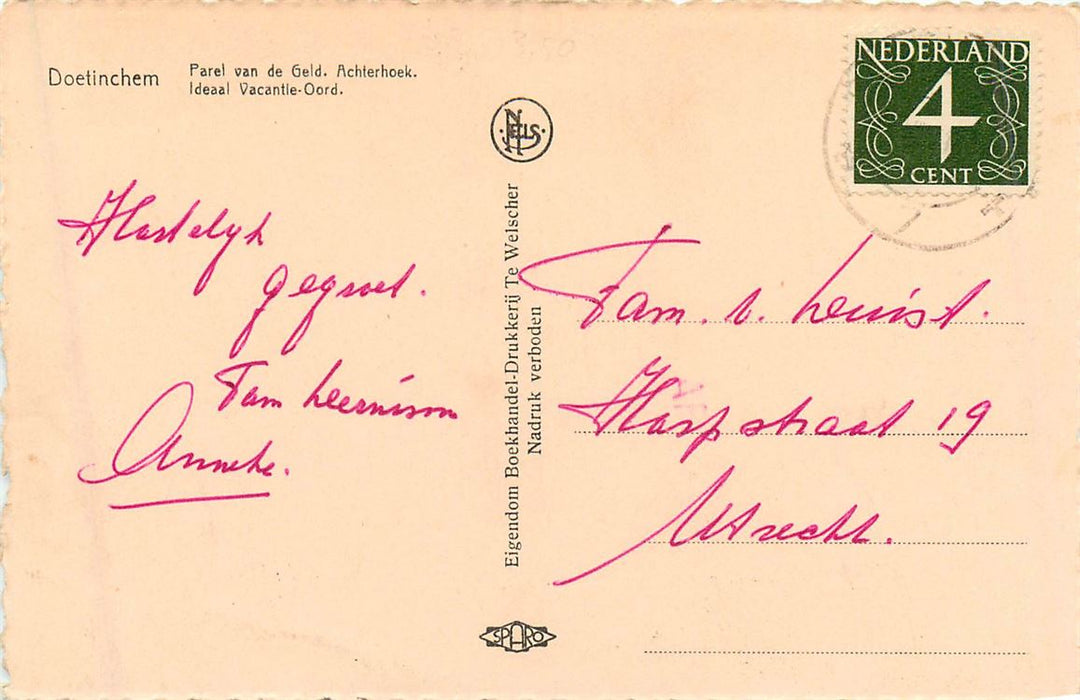 Doetinchem
Parel van de Geld. Achterhoek.
Ideaal Vacantie-Oord.
NELS
NEDERLAND
4
CENT
Hartelyk
gegroet.
Fam
Anneke.
Eigendom Boekhandel-Drukkerij Te Welscher
Nadruk verboden
Fam. v.
Harpstraat 19
Utrecht.
SPARO